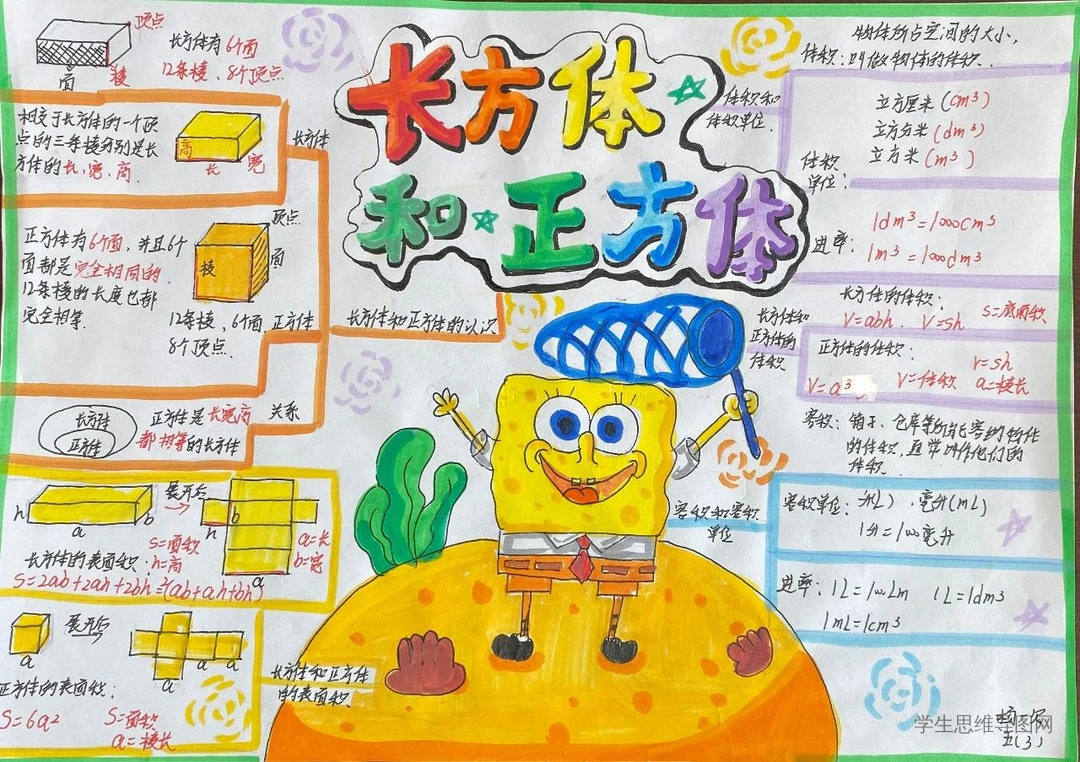 长方体
和正方体
顶点
面
棱
长方体有6个面
12条棱、8个顶点
相交于长方体的一个顶
点的三条棱分别是长
方体的长、宽、高.
高
长
宽
长方体
正方体有6个面,并且6个
面都是完全相同的.
12条棱的长度也都
完全相等.
顶点
面
棱
12条棱、6个面、
8个顶点.
正方体
长方体和正方体的认识
长方体
正方体
正方体是长宽高
都相等的长方体
关系
h
a
b
展开后
b
h
a
a=长
b=宽
h=高
S=面积
长方体的表面积:
S=2ab+2ah+2bh=2(ab+ah+bh)
a
展开后
a
a
a
正方体的表面积:
S=6a²
S=面积
a=棱长
长方体和正方体
的表面积
体积和
体积单位.
物体所占空间的大小,
体积:叫做物体的体积.
体积
单位:
立方厘米(cm³)
立方分米(dm³)
立方米(m³)
进率:
1dm³=1000cm³
1m³=1000dm³
长方体和
正方体的
体积
长方体的体积:
V=abh. V=sh
S=底面积
正方体的体积:
V=a³
V=体积
V=sh
a=棱长
容积:箱子、仓库等所能容纳物体
的体积,通常叫作他们的
体积.
容积和容积
单位
容积单位:升(L),毫升(mL)
1升=1000毫升
进率:1L=1000Lm 1L=1dm³
1mL=1cm³
五(3)
学生思维导图网